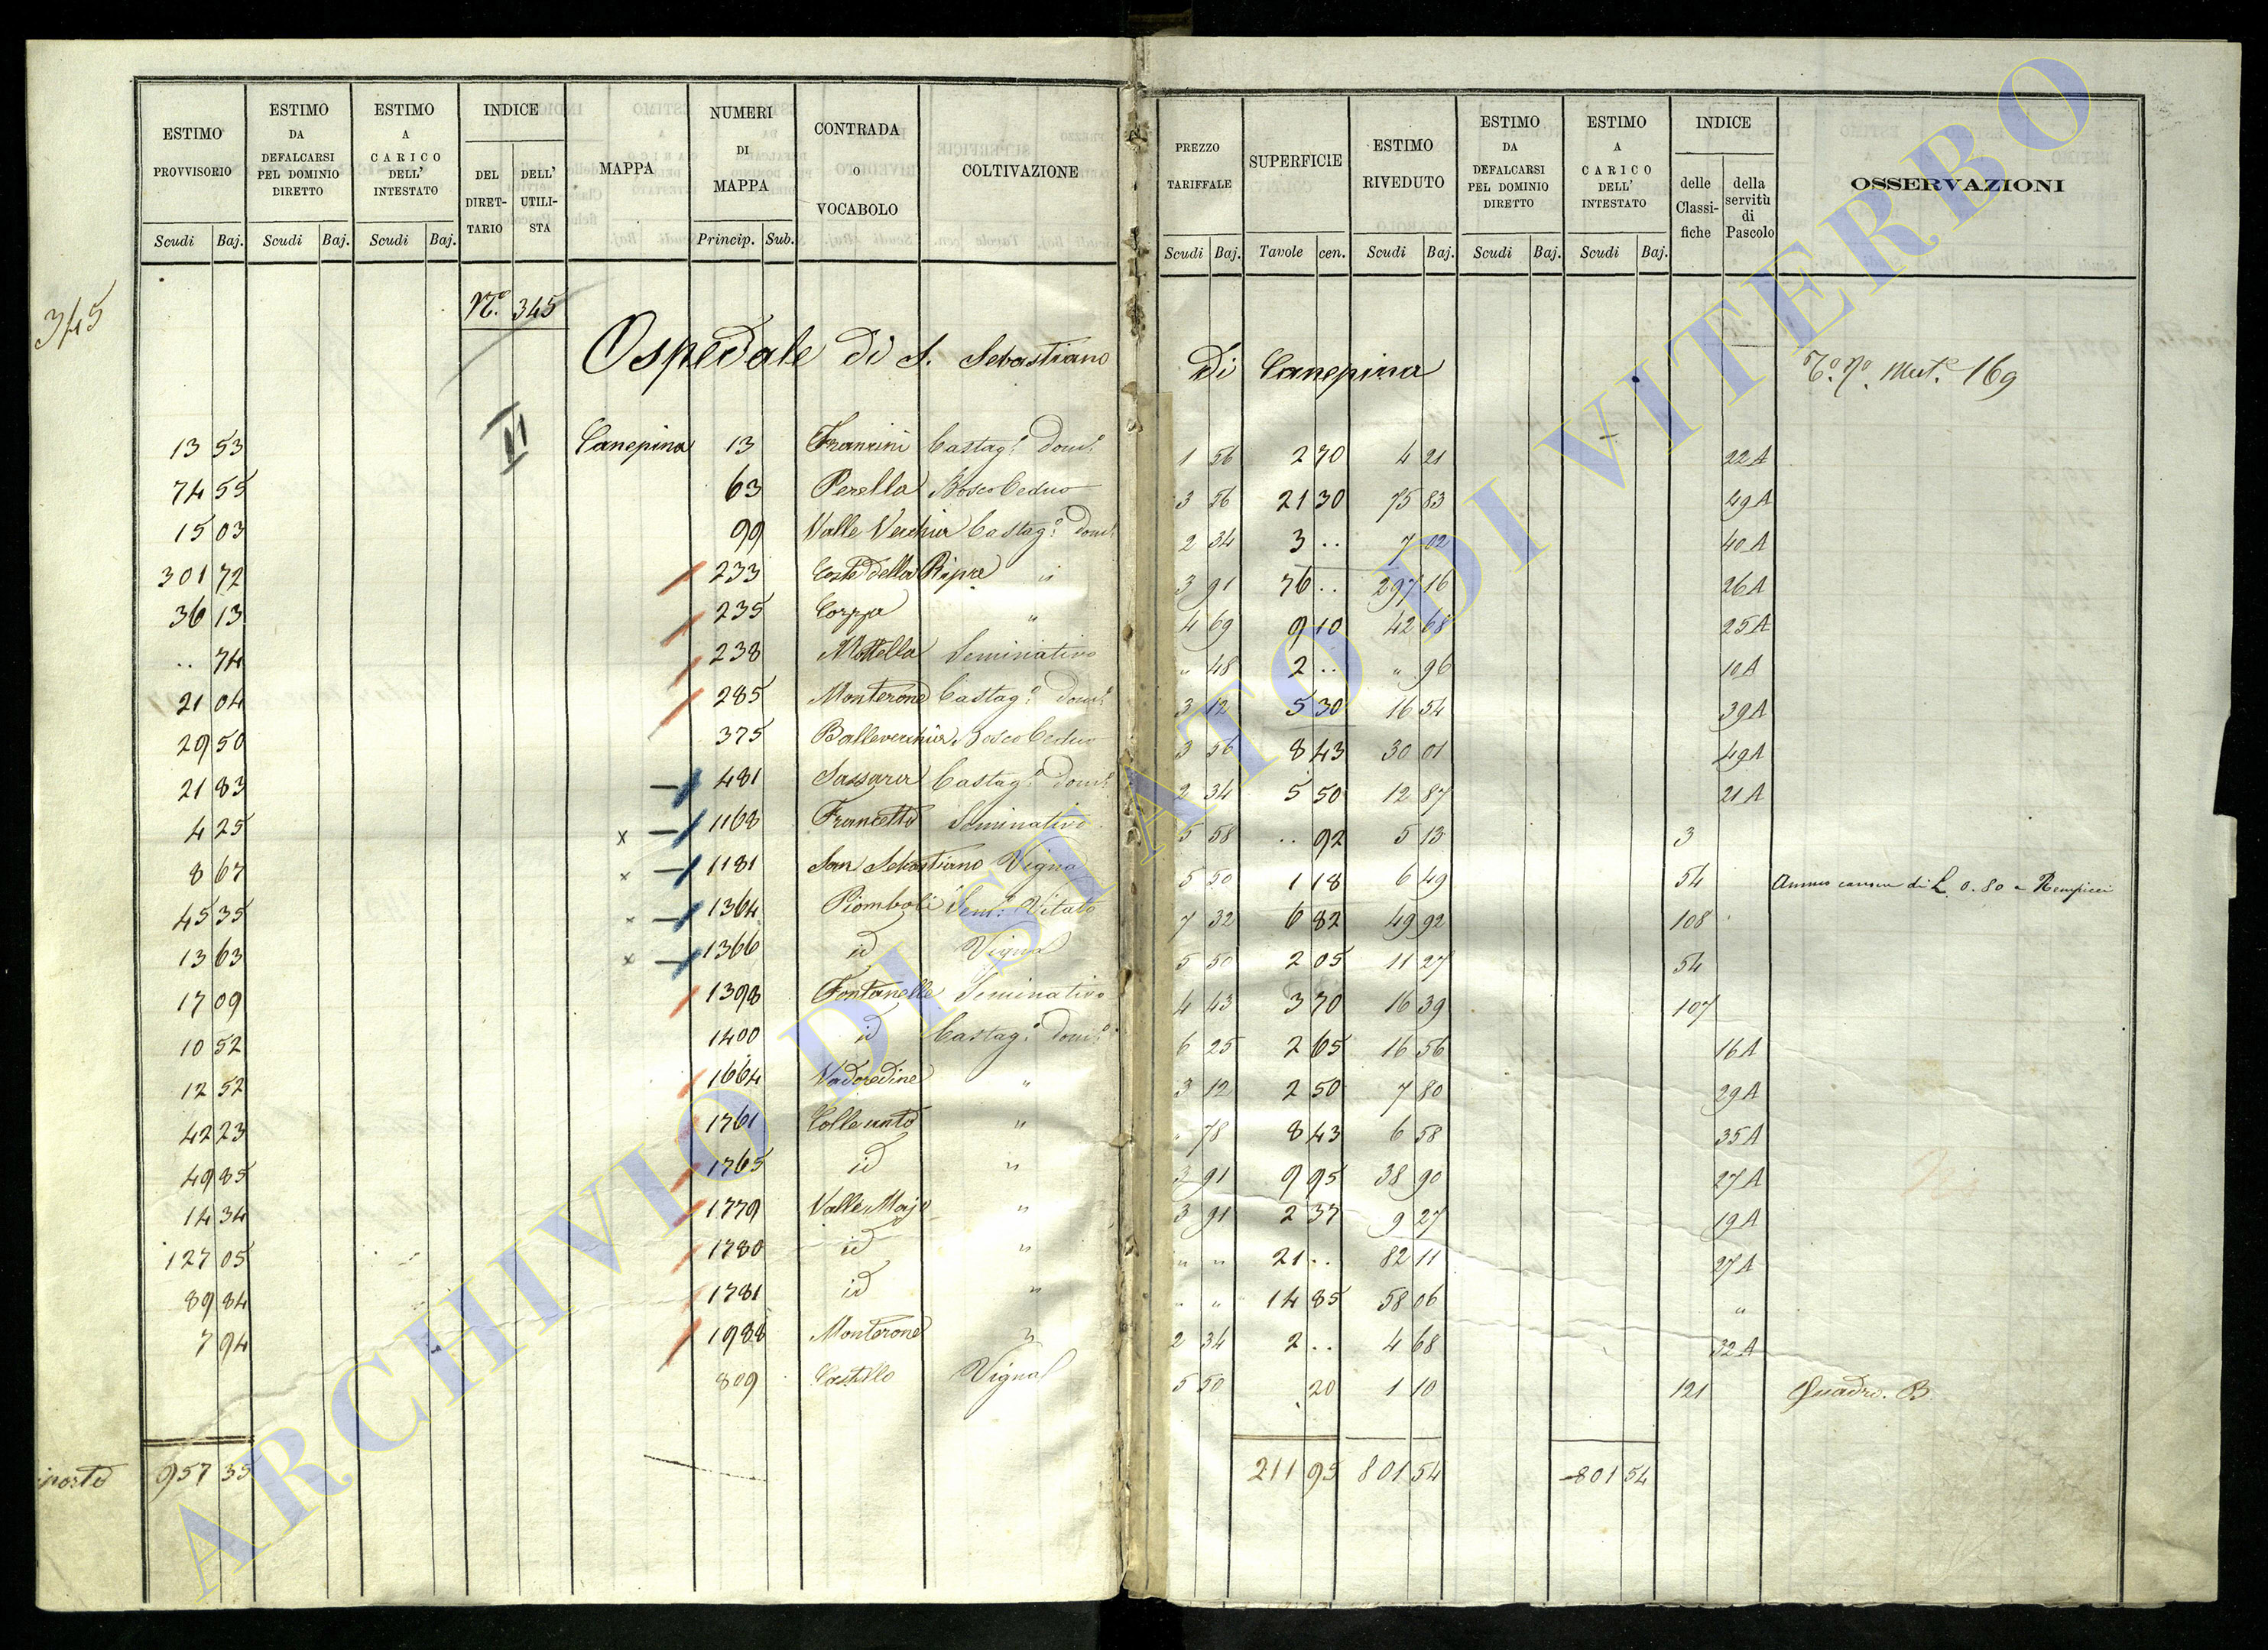 ESTIMO PROVVISORIO
ESTIMO DA DEFALCARSI PEL DOMINIO DIRETTO
ESTIMO A CARICO DELL' INTESTATO
INDICE
DEL DIRETTARIO
DELL' UTILISTA
MAPPA
NUMERI DI MAPPA
CONTRADA O VOCABOLO
COLTIVAZIONE
PREZZO TARIFFALE
SUPERFICIE
ESTIMO RIVEDUTO
ESTIMO DA DEFALCARSI PEL DOMINIO DIRETTO
ESTIMO A CARICO DELL' INTESTATO
INDICE
delle Classifiche
della servitù di Pascolo
OSSERVAZIONI
Scudi Baj. Scudi Baj. Scudi Baj. Princip. Sub. Scudi Baj. Tavole cen. Scudi Baj. Scudi Baj. Scudi Baj.
345
N.º 345
Ospedale di S. Sebastiano di Canepina
Mut.e 169
II
13 53 Canepina 13 Francini Castag.o dom.o 1 56 2 70 4 21 22A
74 55 63 Perella Bosco Ceduo 3 56 21 30 75 83 49A
15 03 99 Valle Vecchia Castag.o dom.o 2 34 3 .. 7 02 40A
301 72 233 Coste della Ripa " 3 91 76 .. 297 16 26A
36 13 235 Coppa " 4 69 9 10 42 68 25A
.. 74 238 Mottella Seminativo " 48 2 .. " 96 10A
21 04 285 Monterone Castag.o dom.o 3 12 5 30 16 54 39A
29 50 375 Ballevecchia Bosco Ceduo 3 56 8 43 30 01 49A
21 83 481 Sassara Castag.o dom.o 2 34 5 50 12 87 21A
4 25 x 1168 Francetto Seminativo 5 58 .. 92 5 13 3
8 67 x 1181 San Sebastiano Vigna 5 50 1 18 6 49 54 Annuo canone di L. 0.80 a
45 35 x 1364 Piomboli Sem.o Vitato 7 32 6 82 49 92 108
13 63 x 1366 id Vigna 5 50 2 05 11 27 54
17 09 1398 Fontanelle Seminativo 4 43 3 70 16 39 107
10 52 1400 id Castag.o dom.o 6 25 2 65 16 56 16A
12 52 1664 Vadoredine " 3 12 2 50 7 80 29A
42 23 1761 Colle unto " " 78 8 43 6 58 35A
49 85 1765 id " 3 91 9 95 38 90 27A
14 34 1779 Valle Maje " 3 91 2 37 9 27 19A
127 05 1780 id " " " 21 .. 82 11 27A
89 84 1781 id " " " 14 85 58 06 "
7 94 1988 Monterone " 2 34 2 .. 4 68 32A
809 Castello Vigna 5 50 20 1 10 121 Quadro. B.
957 35 211 95 801 54 801 54
ARCHIVIO DI STATO DI VITERBO